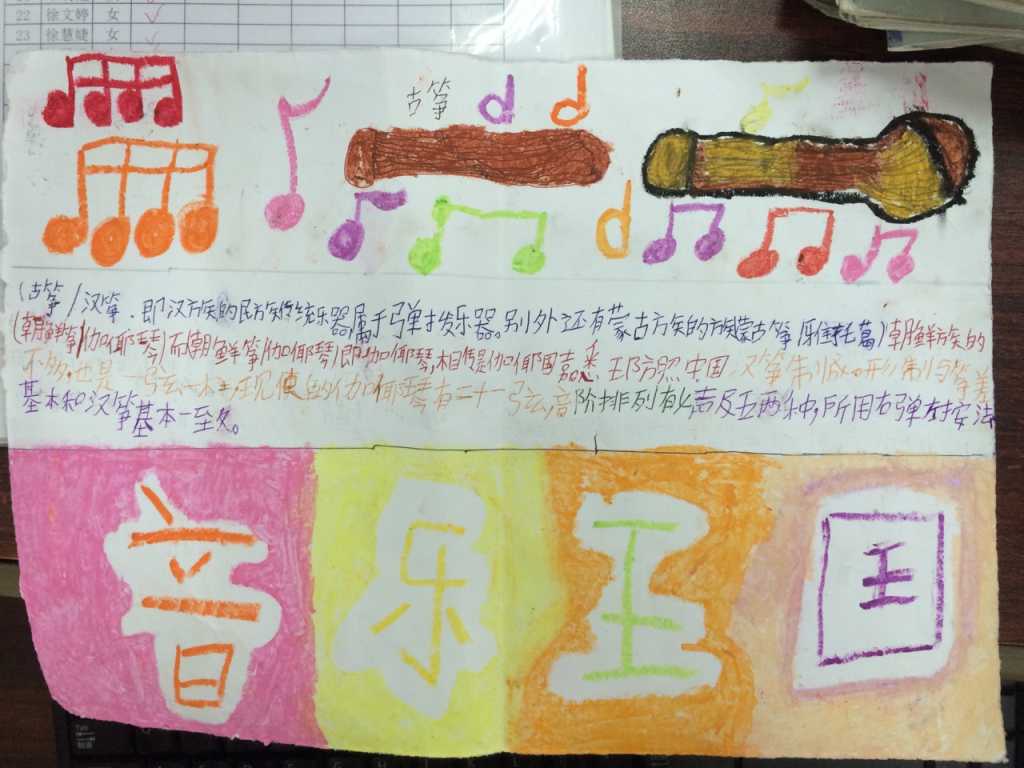 22 徐文婷 女
23 徐慧婕 女
古筝
(古筝/汉筝.即汉方族的民族传统乐器属于弹拨乐器。别外还有蒙古方族的方族蒙古筝(牙托葛)朝鲜方族的
(朝鲜筝)(伽倻琴)而朝鲜筝(伽倻琴)即伽倻琴,相传是伽倻国嘉悉王防照中国汉筝制成。形制与筝差
不多,也是一弦一柱,现使的伽倻琴有二十一弦,音阶排列有幺声及五两种,所用右弹左按法
基本和汉筝基本一至久。
音乐王国